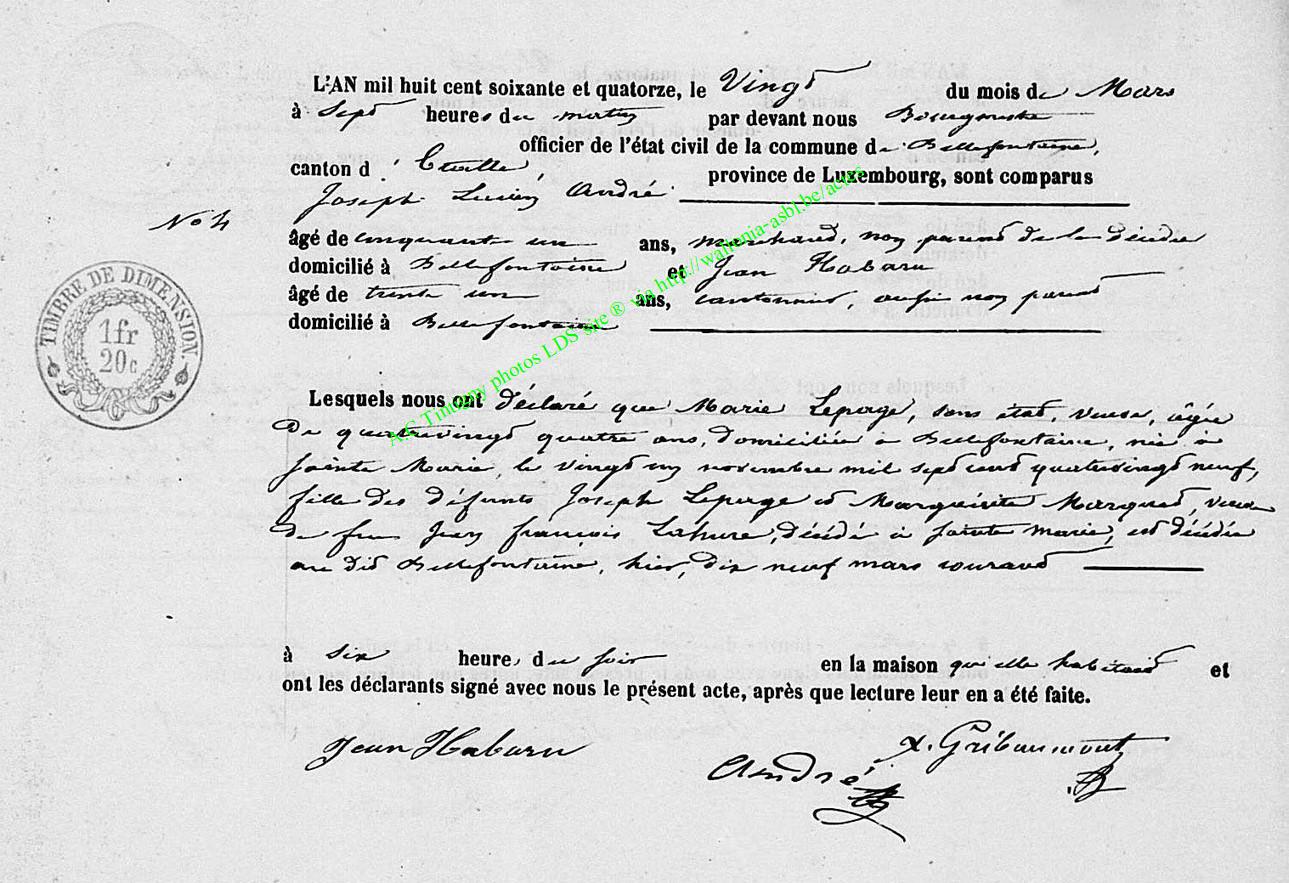 L'AN mil huit cent soixante et quatorze, le Vingt du mois de Mars
à Sept heures du matin par devant nous Bourgmestre
officier de l'état civil de la commune de Bellefontaine,
canton d'Etalle, province de Luxembourg, sont comparus
Joseph Lucien André
No 4
âgé de cinquante un ans, marchand, non parent de la décédée
domicilié à Bellefontaine et Jean Habaru
âgé de trente un ans, cantonnier, aussi non parent
domicilié à Bellefontaine
TIMBRE DE DIMENSION.
1fr
20c
A.C Tintigny photos LDS site ® via http://wallonia-asbl.be/actes
Lesquels nous ont déclaré que Marie Lepage, sans état, veuve, âgée
de quatrevingt quatre ans, domiciliée à Bellefontaine, née à
Sainte Marie, le vingt un novembre mil sept cent quatrevingt neuf,
fille des défunts Joseph Lepage et Marguerite Marquet, veuve
de feu Jean françois Lahure, décédé à Sainte Marie, est décédée
au dit Bellefontaine, hier, dix neuf mars courant
à six heures du soir en la maison qu'elle habitait et
ont les déclarants signé avec nous le présent acte, après que lecture leur en a été faite.
Jean Habaru
André
X. Gribaumont